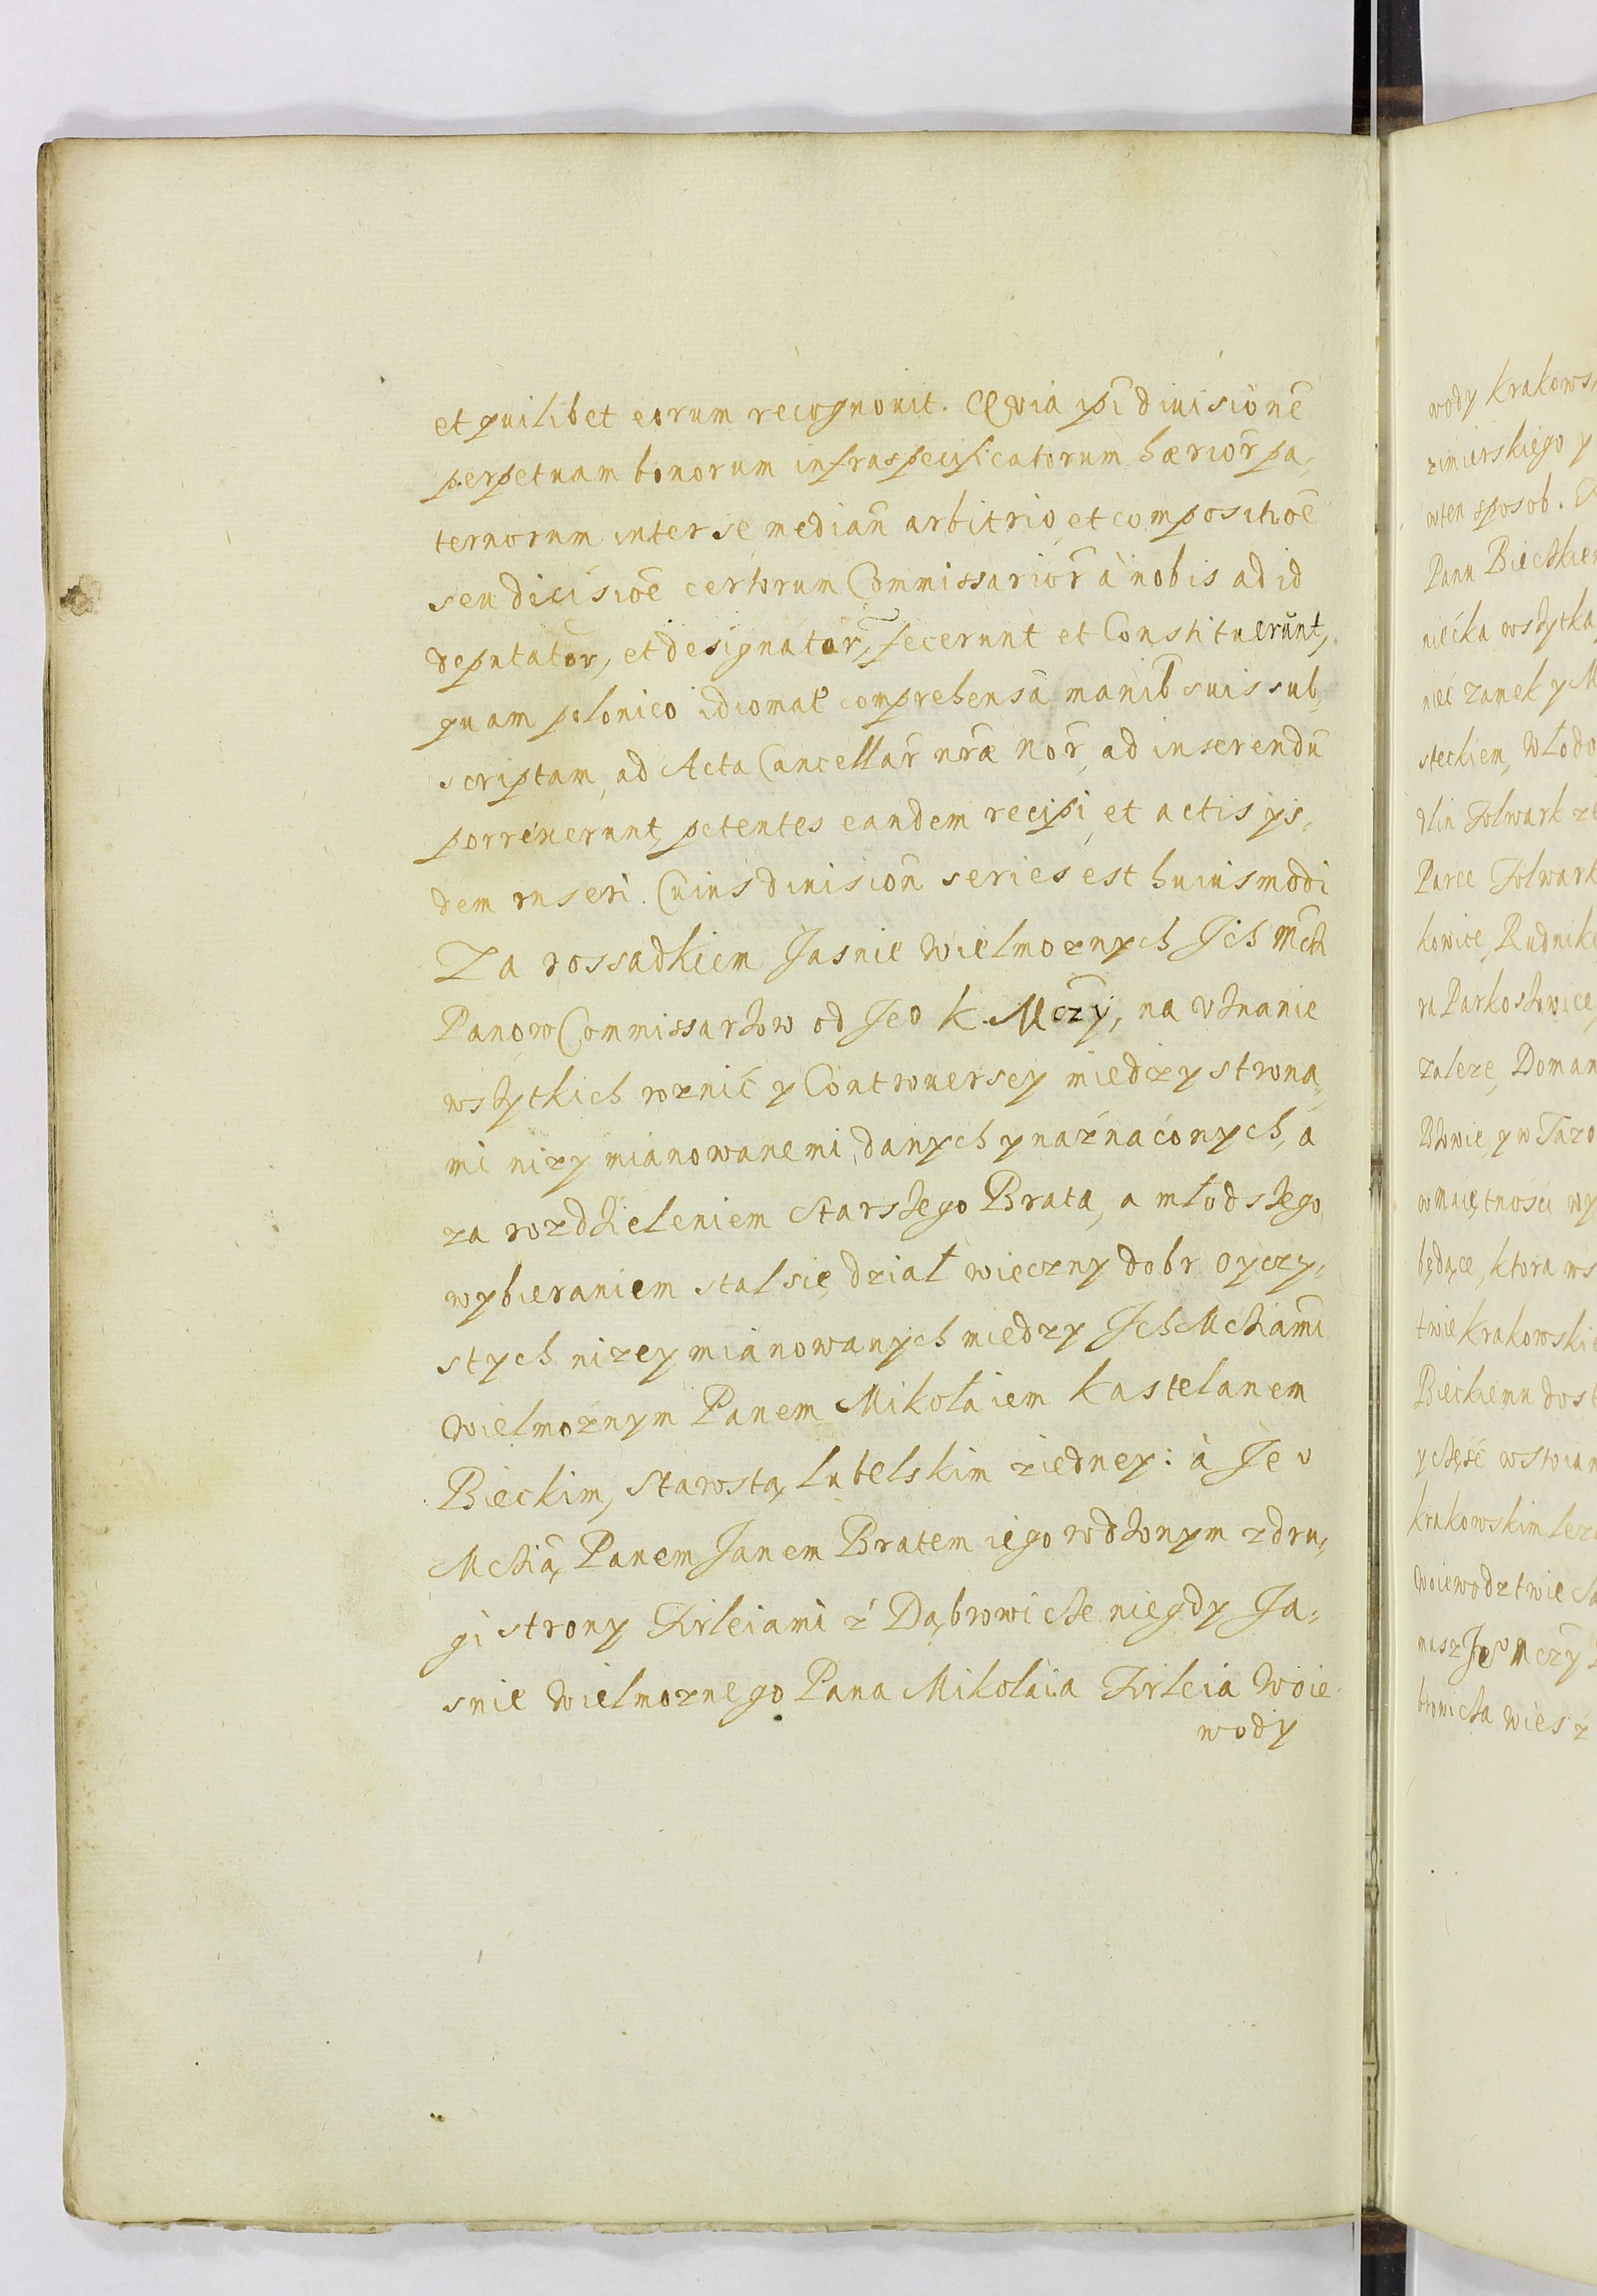 et quilibet eorum recognouit. Quia ipi diuisionē
perpetuam bonorum infraspecificatorum hæriōr pa,
ternorum inter se, median̄ arbitrio, et compositiōe
seu dicisiōe certorum Commissariōr à nobis ad id
deputator̄, et designator̄, fecerunt et Constituerunt,
quam polonico idiomate comprehensā manib̄ suis sub,
scriptam, ad Acta Cancellar̄ nr̄æ Nōr, ad inserendū
porrexerunt, petentes eandem recipi, et actis ys,
dem inseri. Cuius diuision̄ series est huiusmodi
Za rossadkiem Jasnie Wielmoznych Jch Mch
Panow Commissarzow od Jeo K. Mczy, na vznanie
wszytkich roznić y Controuersey miedzy strona,
mi nizy mianowanemi, danych y naznaćonych, a
za rozdzieleniem Starszego Brata, a młodszego
wybieraniem stal się dział wieczny dobr oyczy,
stych nizey mianowanych miedzy Jch Mciami
Wielmożnym Panem Mikołaiem Kastelanem
Bieckim, Starostą Lubelskim ziedney: à Jeo
Mczią Panem Janem Bratem iego rodzonym zdru,
gi strony Firleiami z Dąbrowicze niegdy Ja,
snie Wielmoznego Pana Mikołaia Firleia Woie
wody
wody Krakows
zimierskiego y
wten sposob.
Panu Bieczkie
niećka wszytka
nieć Zamek y M
steckiem, Włodo
dlin Folwark z
Parce Folwark
kowice, Rudniki
ra Parkoszowice,
zaleze, Doman
y w Tazo
w Maiętności wy
będące, ktora ws
twie Krakowski
Bieckiemu dost
y część w Stocian
Krakowskim leze
Woiewodztwie Sa
masz Jeo Mczy
browicza wies z